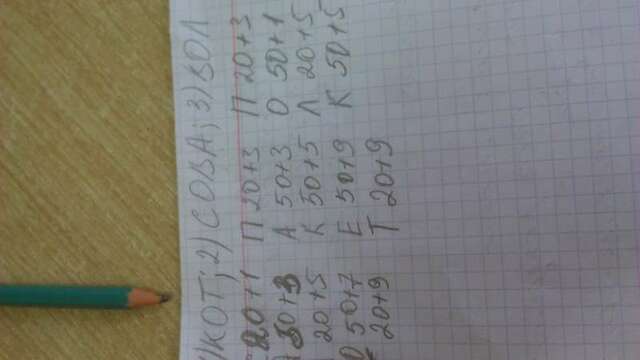 1) КОТ; 2) СОВА; 3) ВОЛ
20+1 П 20+3 П 20+3
50+3 А 50+3 О 50+1
20+5 К 50+5 Л 20+5
50+7 Е 50+9 К 50+5
20+9 Т 20+9